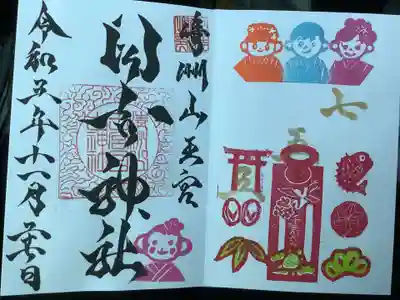 清洲山王宮
日吉神社
令和五年十一月吉日
七五三